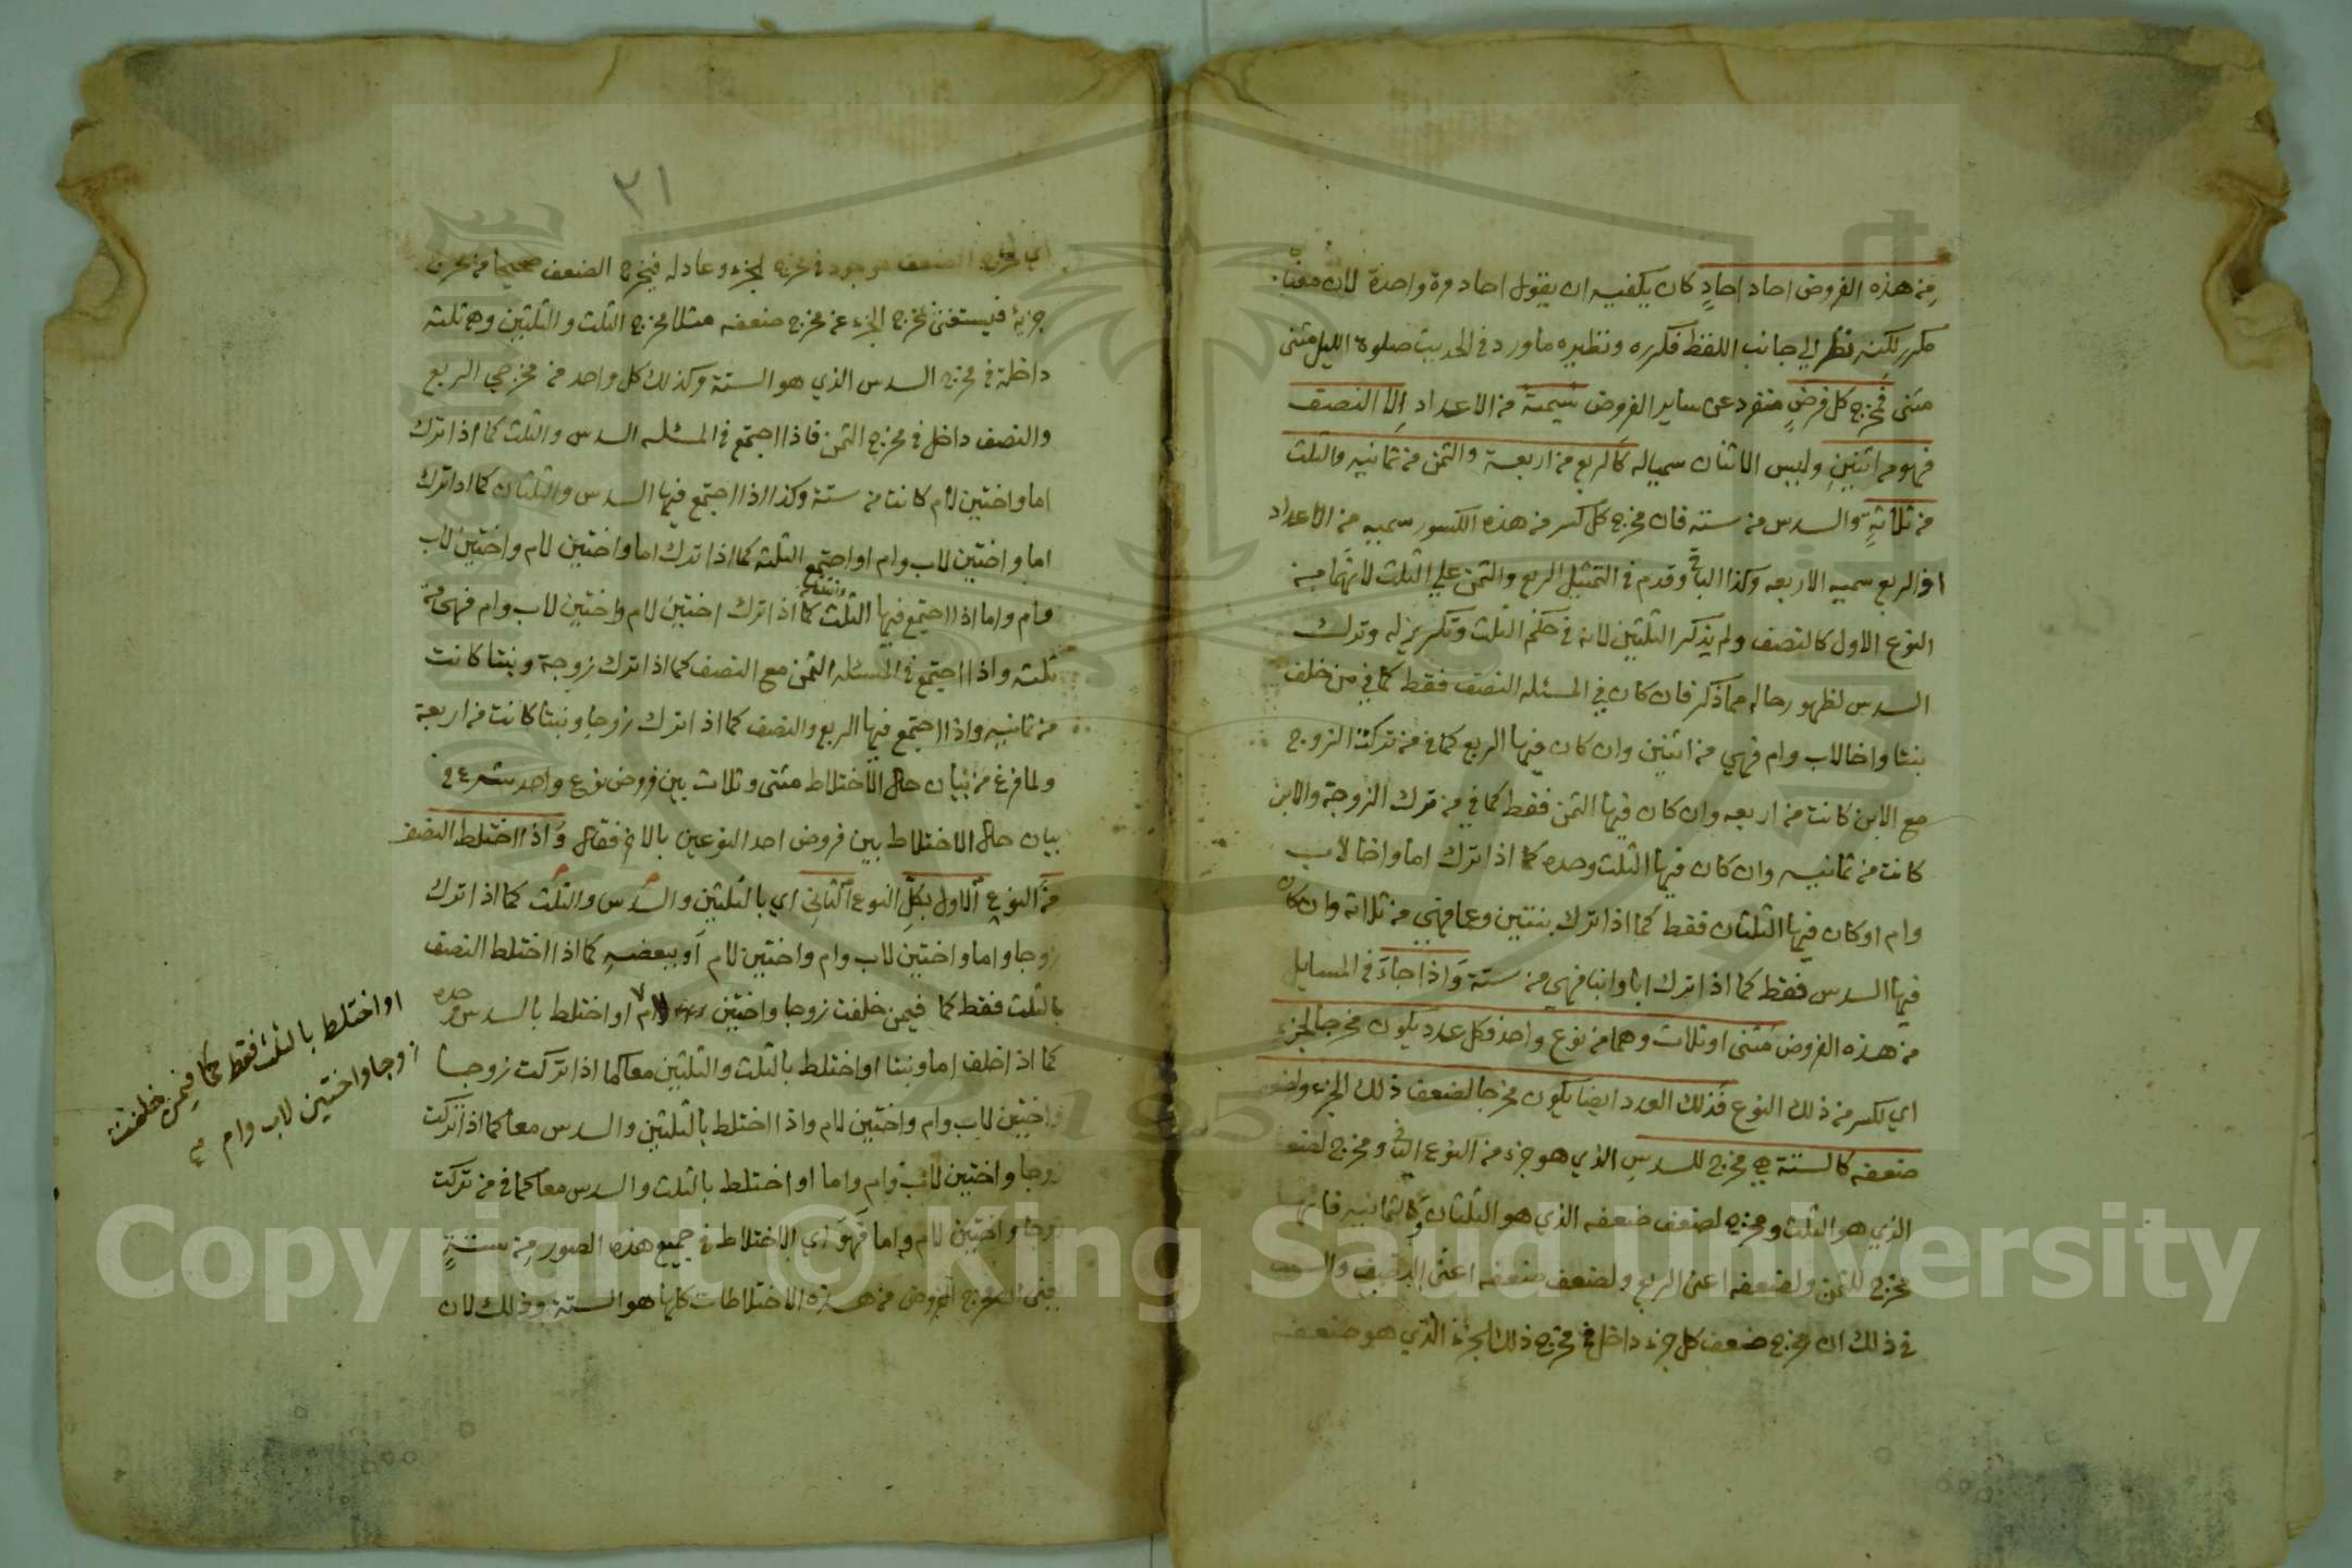 من هذه الفروض احاد احاد كان يكفيه ان يقول احاد مرة واحدة لان معناه
مكرر لكنه نظر الي جانب اللفظ فكرره ونظيره ما ورد في الحديث صلوة الليل مثنى
مثنى فمخرج كل فرض منفرد عن ساير الفروض سميه من الاعداد الا النصف
فهو من اثنين وليس الاثنان سمياله كالربع من اربعة والثمن من ثمانيه والثلث
من ثلاثة والسدس من سته فان مخرج كل كسر من هذه الكسور سميه من الاعداد
اذ الربع سميه الاربعه وكذا الباقي وقدم في التمثيل الربع والثمن علي الثلث لانهما من
النوع الاول كالنصف ولم يذكر الثلثين لانه في حكم الثلث وتكرير له وترك
السدس لظهور حاله مما ذكر فان كان في المسئله النصف فقط كما في من خلف
بنتا واخا لاب وام فهي من اثنين وان كان فيها الربع كما في من تركت الزوج
مع الابن كانت من اربعه وان كان فيها الثمن فقط كما في من ترك الزوجة والابن
كانت من ثمانيه وان كان فيها الثلث وحده كما اذا ترك اما واخا لاب
وام او كان فيها الثلثان فقط كما اذا ترك بنتين وعما فهي من ثلاثة وان كان
فيها السدس فقط كما اذا ترك ابا وابنا فهي من ستة واذا جاء في المسايل
من هذه الفروض مثنى او ثلاث وهما من نوع واحد فكل عدد يكون مخرجا لجزء
اي لكسر من ذلك النوع فذلك العدد ايضا يكون مخرجا لضعف ذلك الجزء ولضعف
ضعفه كالستة هي مخرج للسدس الذي هو جزء من النوع الثاني ومخرج لضعفه
الذي هو الثلث ومخرج لضعف ضعفه الذي هو الثلثان وكالثمانيه فانها
مخرج للثمن ولضعفه اعني الربع ولضعف ضعفه اعني النصف والسبب
في ذلك ان مخرج ضعف كل جزء داخل في مخرج ذلك الجزء الذي هو ضعفه
٢١
الضعف موجود في مخرج الجزء وعادله فيخرج الضعف صحيحا من مخرج
جزئه فيستغنى بمخرج الجزء عن مخرج ضعفه مثلا مخرج الثلث والثلثين وهو ثلثه
داخلة في مخرج السدس الذي هو الستة وكذلك كل واحد من مخرجي الربع
والنصف داخل في مخرج الثمن فاذا اجتمع في المسئله السدس والثلث كما اذا ترك
اما واختين لام كانت من ستة وكذا اذا اجتمع فيها السدس والثلثان كما اذا ترك
اما واختين لاب وام او اجتمع الثلثه كما اذا ترك اما واختين لام واختين لاب
وام واما اذا اجتمع فيها الثلث والثلثان كما اذا ترك اختين لام واختين لاب وام فهي من
ثلثه واذا اجتمع في المسئله الثمن مع النصف كما اذا ترك زوجة وبنتا كانت
من ثمانيه واذا اجتمع فيها الربع والنصف كما اذا ترك زوجا وبنتا كانت من اربعة
ولما فرغ من بيان حال الاختلاط مثنى وثلاث بين فروض نوع واحد شرع في
بيان حال الاختلاط بين فروض احد النوعين بالاخر فقال واذا اختلط النصف
من النوع الاول بكل النوع الثاني اي بالثلثين والسدس والثلث كما اذا ترك
زوجا واما واختين لاب وام واختين لام او ببعضه كما اذا اختلط النصف
بالثلث فقط كما فيمن خلفت زوجا واختين لام او اختلط بالسدس وحده
كما اذا خلف اما وبنتا او اختلط بالثلث والثلثين معا كما اذا تركت زوجا
واختين لاب وام واختين لام واذا اختلط بالثلثين والسدس معا كما اذا تركت
زوجا واختين لاب وام واما او اختلط بالثلث والسدس معا كما في من تركت
زوجا واختين لام واما فهو اي الاختلاط في جميع هذه الصور من ستة
الفروض من هذه الاختلاطات كلها هو الستة وذلك لان
او اختلط بالثلث فقط كما فيمن خلفت
زوجا واختين لاب وام
Copyright © King Saud University
1957